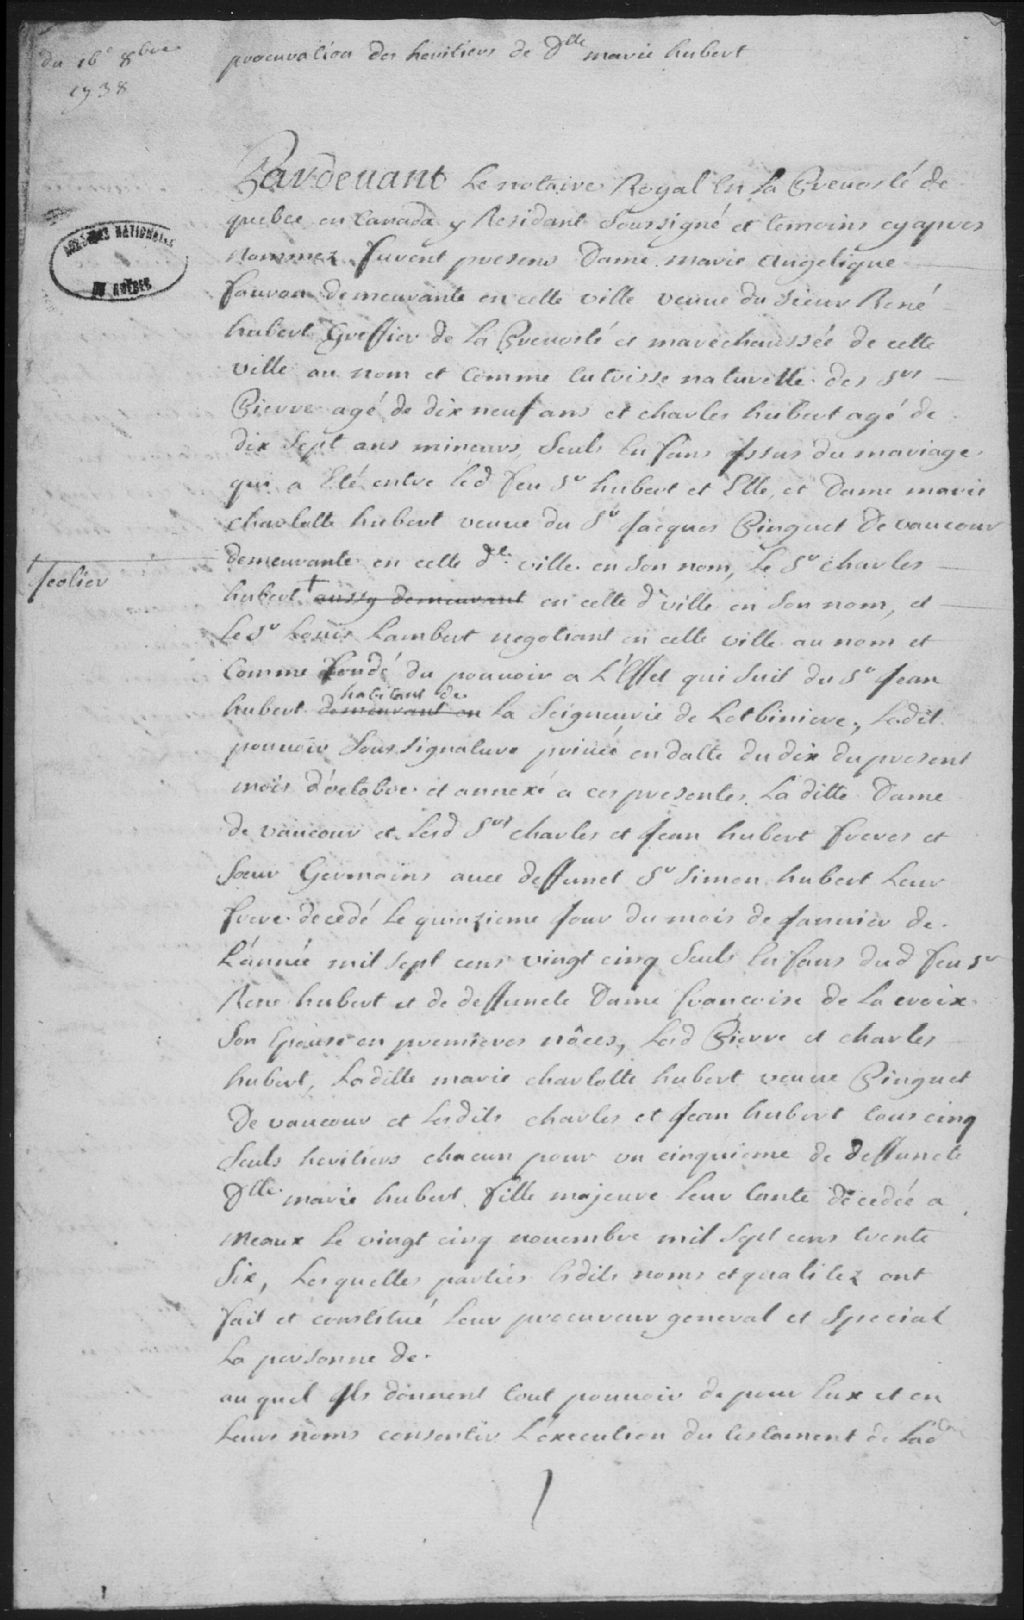 du 16e 8bre
1738
procuration des heritiers de Dlle marie hubert
ARCHIVES NATIONALES
DU QUÉBEC
Pardevant Le notaire Royal En La Prevosté de
quebec en Canada y Residant Soussigné et temoins cy apres
nommez furent presens Dame marie angelique
fauron demeurante en cette ville veuve du sieur René
hubert Greffier de La Prevosté et maréchaussée de cette
ville au nom et Comme tutrisse naturelle des Srs
Pierre agé de dix neuf ans et charles hubert agé de
dix Sept ans mineurs, Seuls Enfans Issus du mariage
qui a Eté entre led feu Sr hubert et Elle, et Dame marie
charlotte hubert veuve du Sr Jacques Pinguet De vaucour
demeurante en cette de ville en Son nom, Le Sr charles
Ecolier
hubert + aussy demeurant en cette d ville en Son nom, et
Le Sr Louis Lambert negotiant en cette ville au nom et
Comme fondé du pouvoir a L'Effet qui Suit du Sr Jean
habitant de
hubert demeurant en La Seigneurie de Lotbiniere, Ledit
pouvoir Sous Signature privée en datte du dix du present
mois d'octobre et annexé a ces presentes La ditte Dame
de vaucour et Lesd Srs charles et Jean hubert freres et
Sœur Germains avec deffunct Sr Simon hubert Leur
frere decedé Le quinzieme Jour du mois de Janvier de
L'année mil Sept cens vingt cinq Seuls Enfans dud feu Sr
Rene hubert et de deffuncte Dame francoise de La croix
Son Epouse en premieres nôces, Lesd Pierre et charles
hubert, Laditte marie charlotte hubert veuve Pinguet
De vaucour et Lesdits charles et Jean hubert tous cinq
Seuls heritiers chacun pour un cinquieme de deffuncte
Dlle marie hubert fille majeure Leur tante décedée a
Meaux Le vingt cinq novembre mil Sept cens trente
Six, Lesquelles parties esdits noms et qualitez ont
fait et constitué Leur procureur general et Special
La personne de
auquel Ils donnent tout pouvoir de pour Eux et en
Leurs noms consentir L'execution du testament de Lad